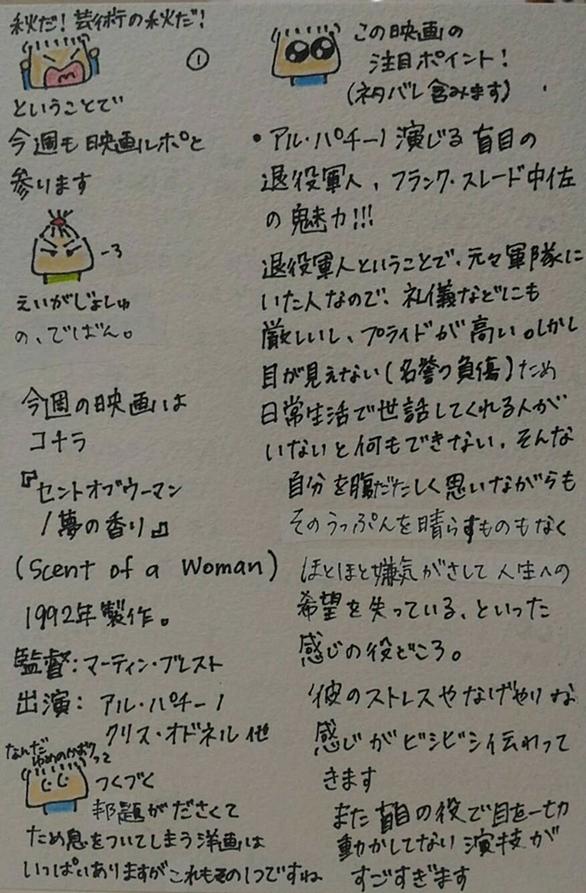 秋だ！芸術の秋だ！
①
ということで
今週も映画ルポと
参ります
えいがじょしゅ
の、でばん。
今週の映画は
コチラ
『セントオブウーマン
/夢の香り』
(Scent of a Woman)
1992年製作。
監督：マーティン・ブレスト
出演： アル・パチーノ
クリス・オドネル 他
なんだ
ゆめのかおりって
つくづく
邦題がださくて
ため息をついてしまう洋画は
いっぱいありますがこれもその1つですね
この映画の
注目ポイント！
(ネタバレ含みます)
・アル・パチーノ演じる盲目の
退役軍人、フランク・スレード中佐
の魅力!!!
退役軍人ということで、元々軍隊に
いた人なので、礼儀などにも
厳しいし、プライドが高い。しかし
目が見えない(名誉の負傷)ため
日常生活で世話してくれる人が
いないと何もできない、そんな
自分を腹だたしく思いながらも
そのうっぷんを晴らすものもなく
ほとほと嫌気がさして人生への
希望を失っている、といった
感じの役どころ。
彼のストレスやなげやりな
感じがビシビシ伝わって
きます
また盲目の役で目を一切
動かしてない演技が
すごすぎます